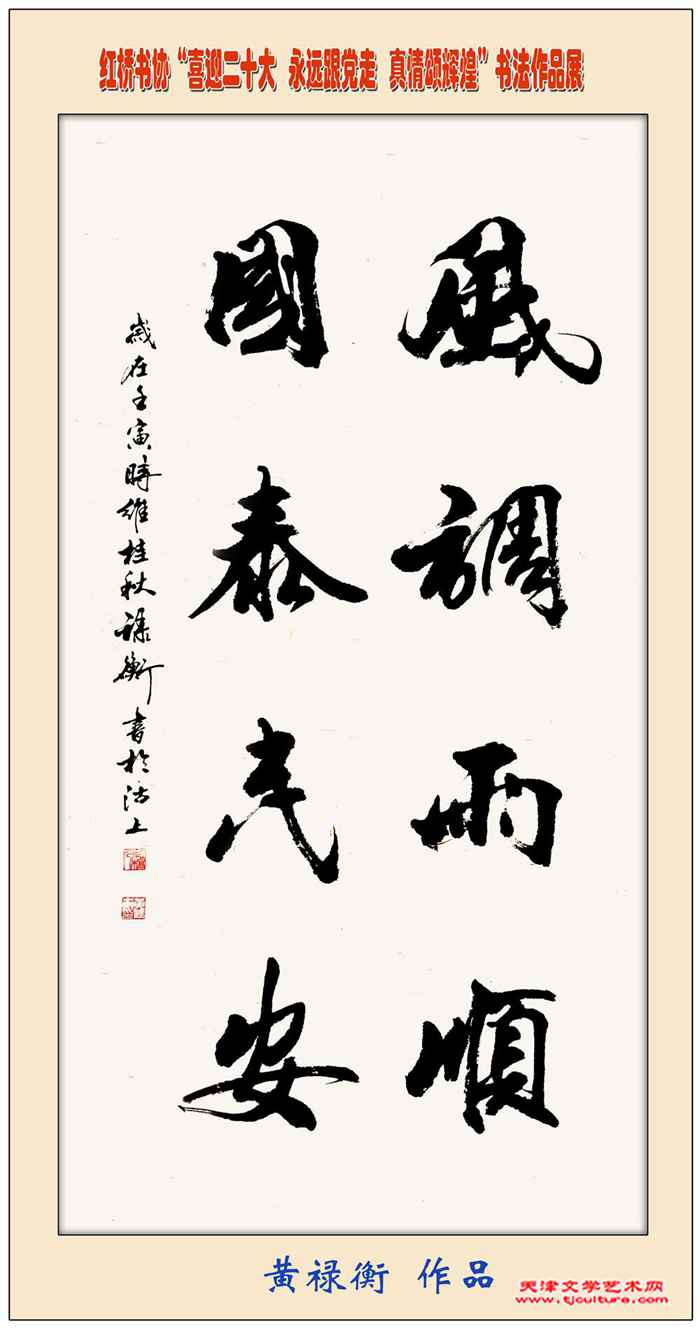 红桥书协“喜迎二十大 永远跟党走 真情颂辉煌”书法作品展
風調雨順
國泰民安
歲在壬寅時維桂秋祿衡書於沽上
黄禄衡 作品
天津文学艺术网
www.tjculture.com